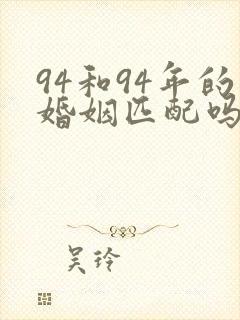 94和94年的
婚姻匹配吗
吴玲